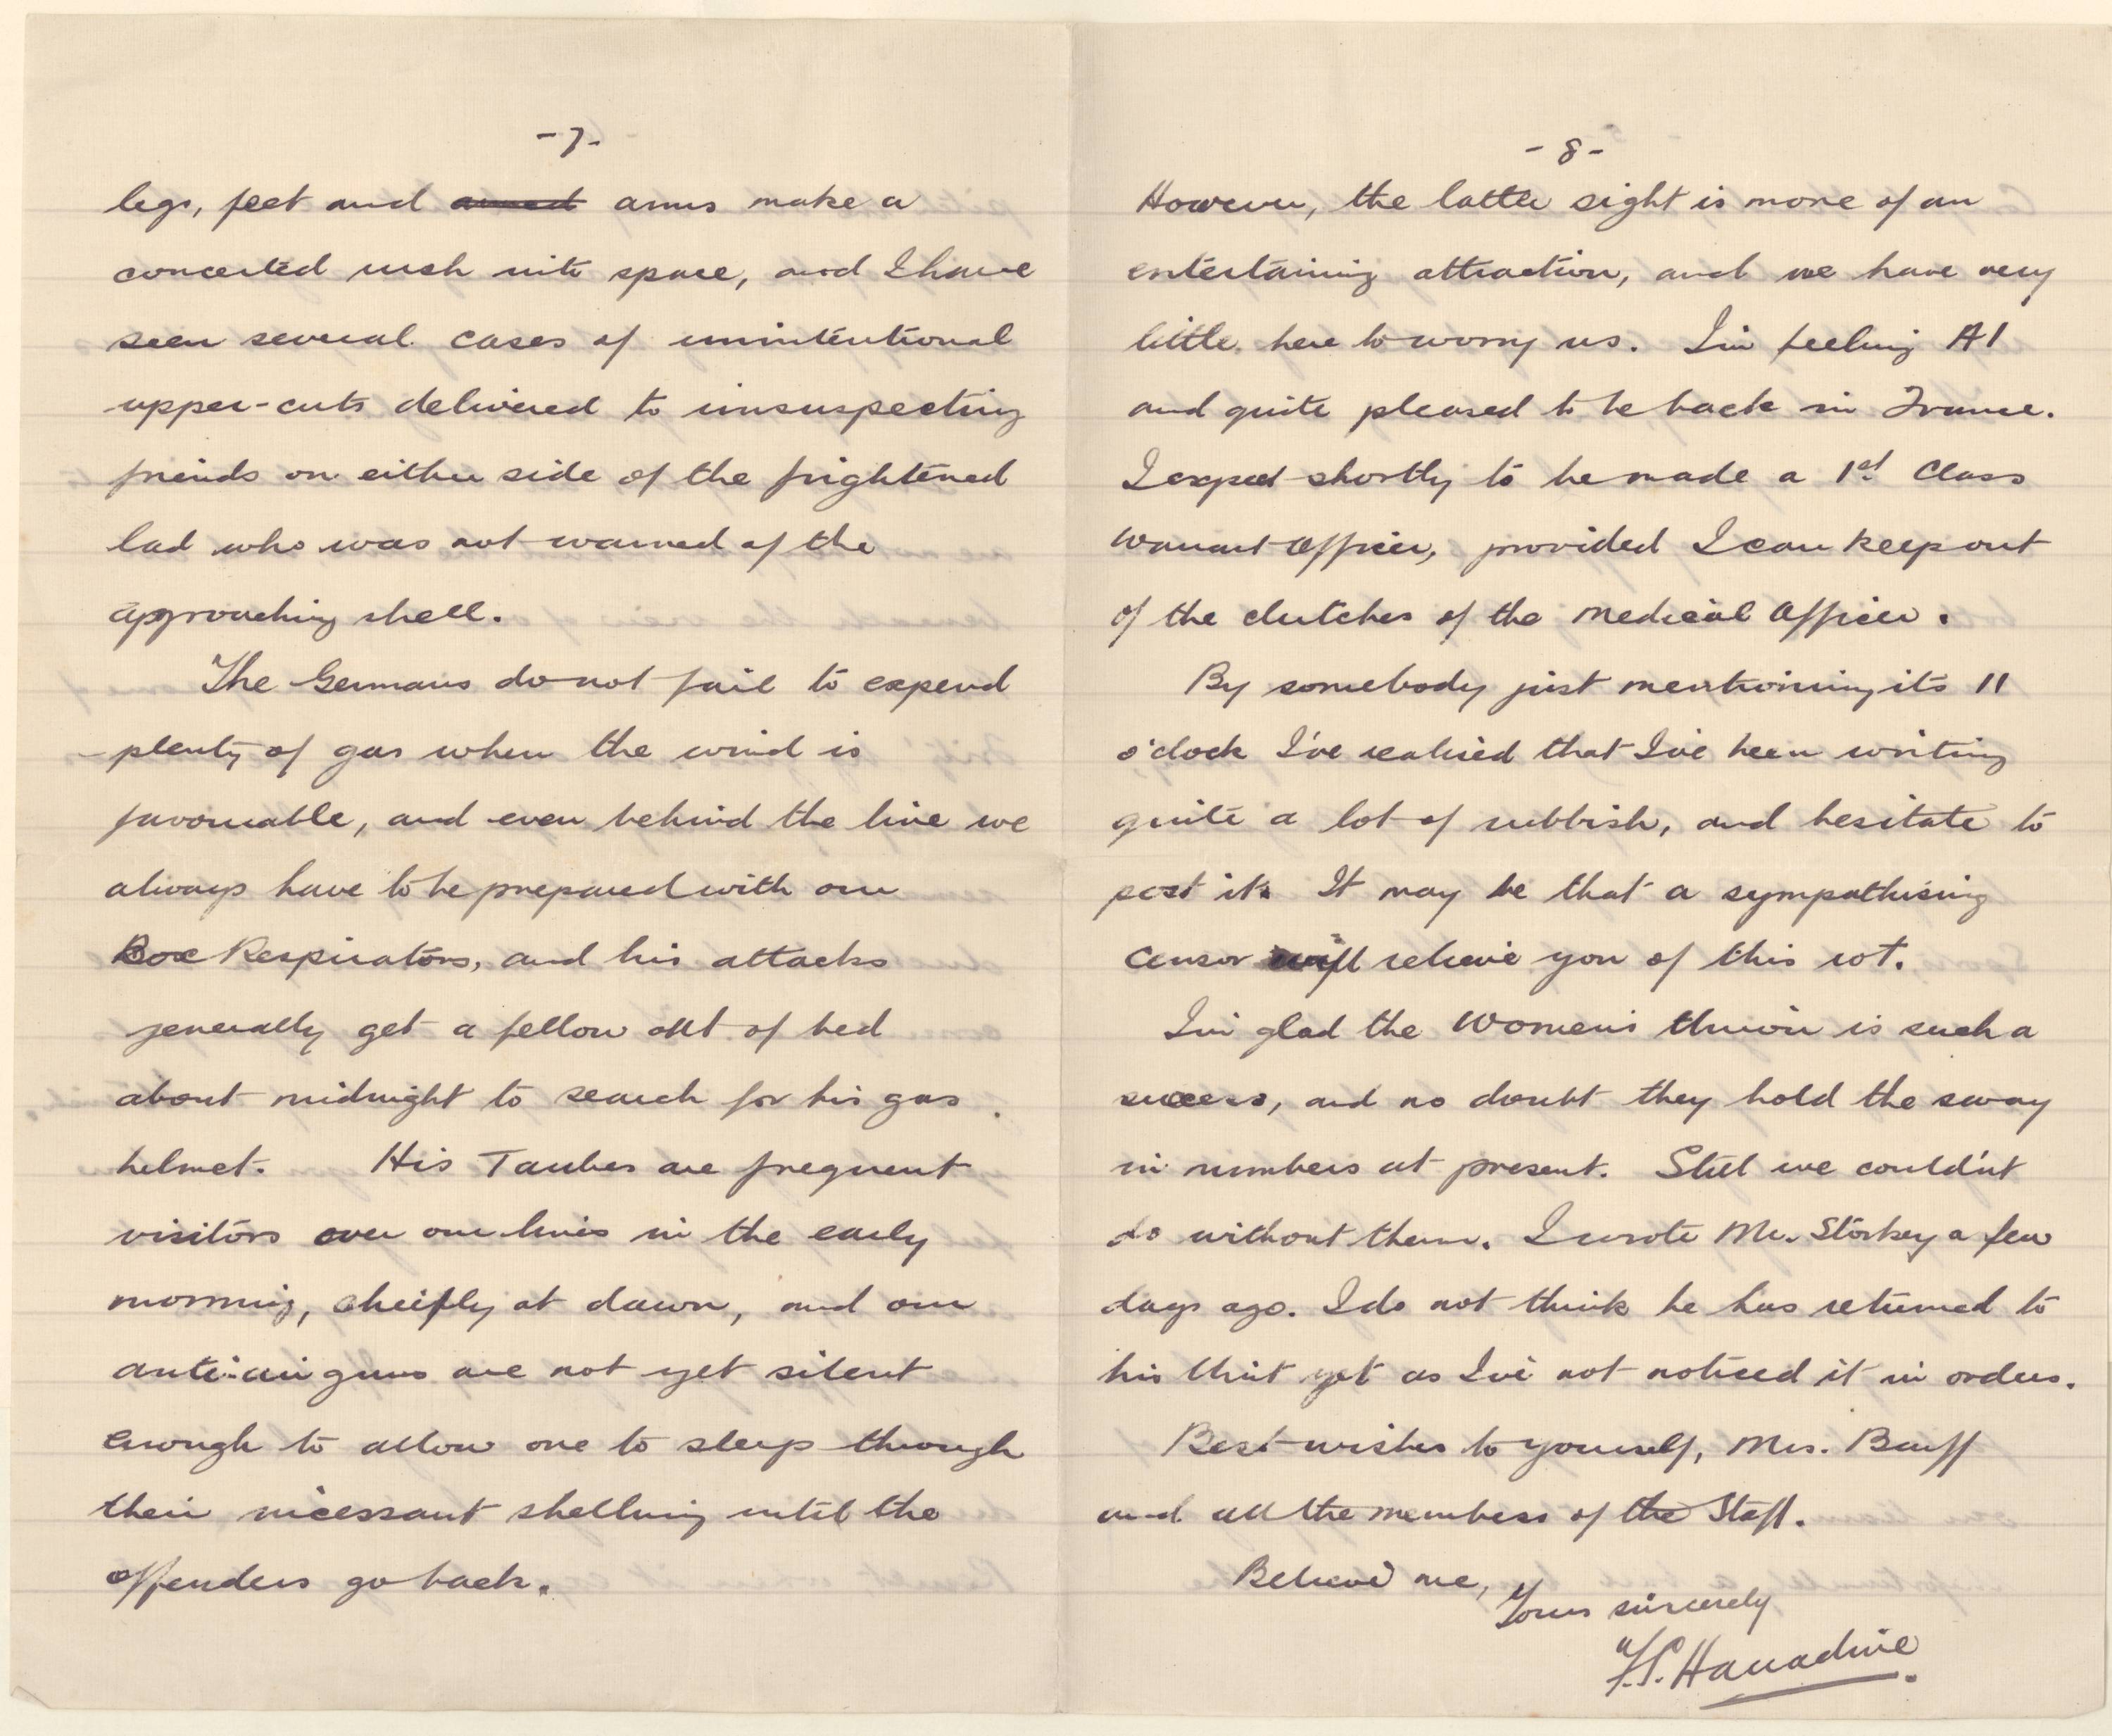 -7-
legs, feet and arms make a
concerted rush into space, and I have
seen several cases of unintentional
upper-cuts delivered to unsuspecting
friends on either side of the frightened
lad who was not warned of the
approaching shell.
The Germans do not fail to expend
plenty of gas when the wind is
favourable, and even behind the line we
always have to be prepared with our
Box Respirators, and his attacks
generally get a fellow out of bed
about midnight to search for his gas
helmet. His Taubes are frequent
visitors over our lines in the early
morning, cheifly at dawn, and our
anti-air guns are not yet silent
enough to allow one to sleep through
their incessant shelling until the
offenders go back.
-8-
However, the latter sight is more of an
entertaining attraction, and we have very
little here to worry us. I'm feeling A1
and quite pleased to be back in France.
I expect shortly to be made a 1st Class
Warrant Officer, provided I can keep out
of the clutches of the Medical Officer.
By somebody just mentioning it's 11
o'clock I've realised that I've been writing
quite a lot of rubbish, and hesitate to
post it. It may be that a sympathising
censor will relieve you of this rot.
I'm glad the Women's Union is such a
success, and no doubt they hold the sway
in numbers at present. Still we couldn't
do without them. I wrote Mr. Storkey a few
days ago. I do not think he has returned to
his Unit yet as I've not noticed it in orders.
Best wishes to yourself, Mrs. Barff
and all the members of the Staff.
Believe me,
Yours sincerely
Harradine